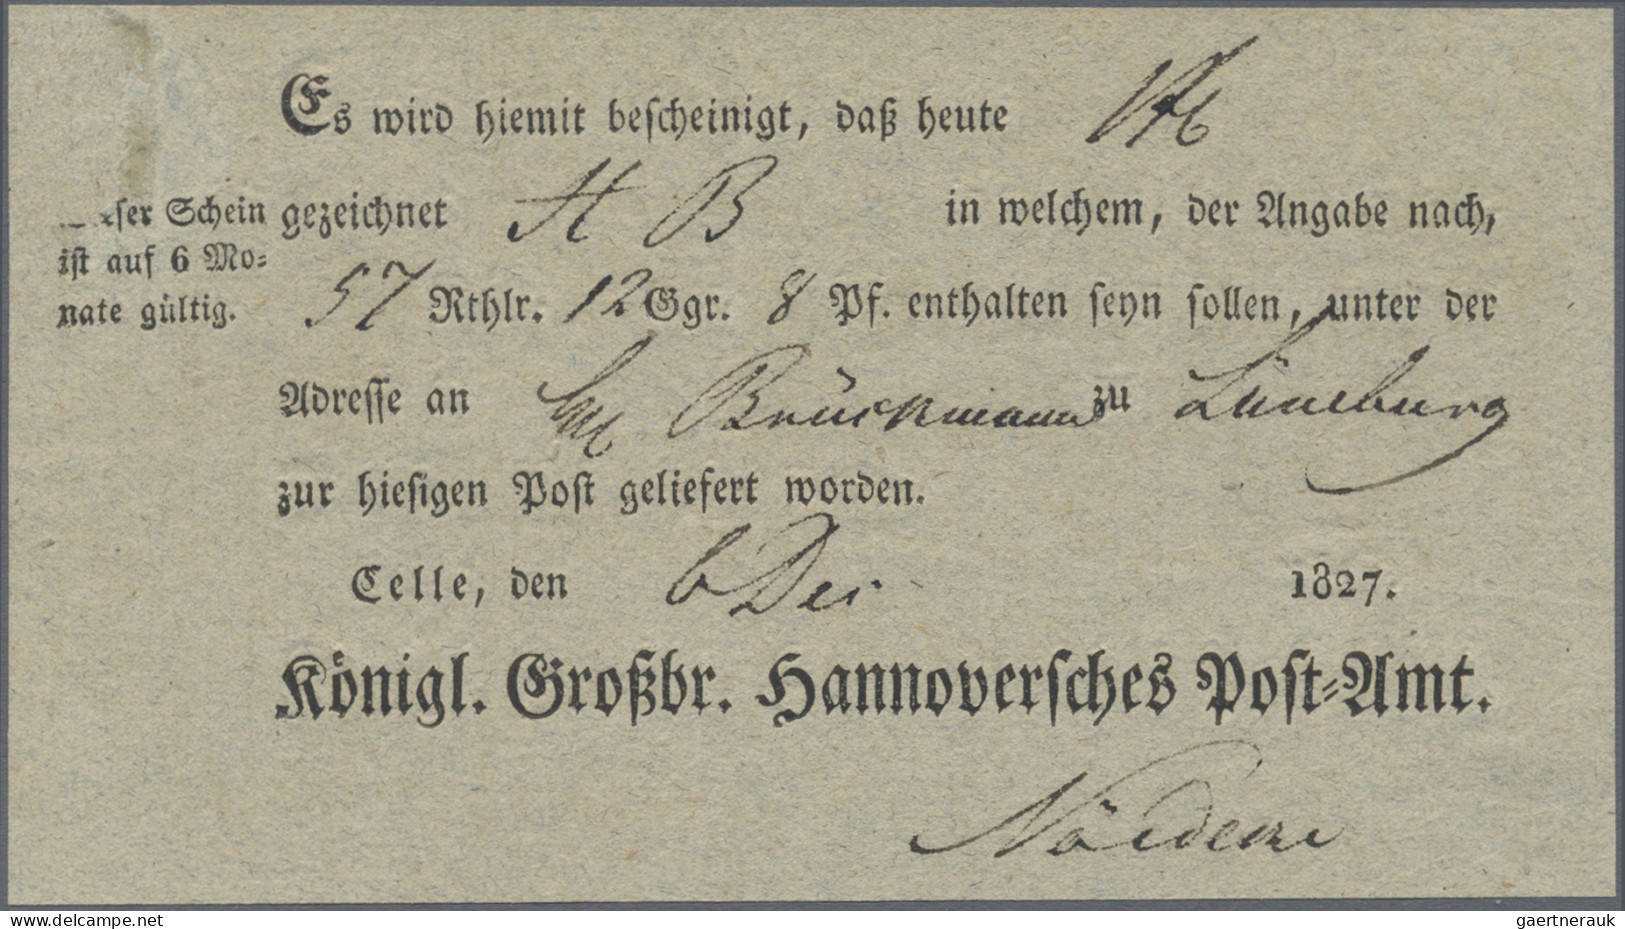 Es wird hiemit bescheinigt, daß heute
gezeichnet H B in welchem, der Angabe nach,
57 Rthlr. 12 Ggr. 8 Pf. enthalten seyn sollen, unter der
Adresse an Brückmann zu Lüneburg
zur hiesigen Post geliefert worden.
Celle, den 6 Dec 1827.
Königl. Großbr. Hannoversches Post-Amt.
Schein
ist auf 6 Mo-
nate gültig.
gaertnerauk
delcampe.net